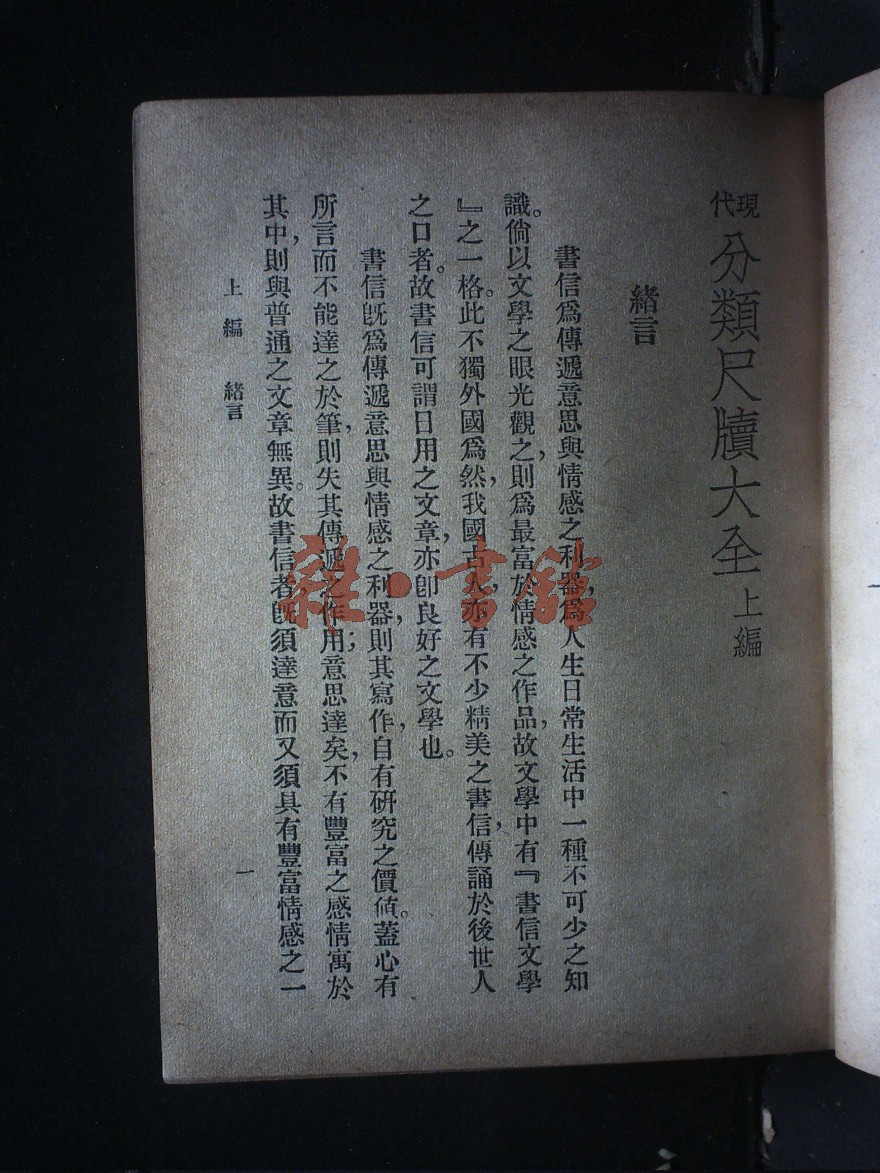 現代分類尺牘大全 上編
緒言
書信爲傳遞意思與情感之利器，爲人生日常生活中一種不可少之知
識。倘以文學之眼光觀之，則爲最富於情感之作品，故文學中有『書信文學
』之一格。此不獨外國爲然，我國古人，亦有不少精美之書信，傳誦於後世人
之口者。故書信可謂日用之文章，亦卽良好之文學也。
書信旣爲傳遞意思與情感之利器，則其寫作，自有硏究之價値。蓋心有
所言而不能達之於筆，則失其傳遞之作用；意思達矣，不有豐富之感情寓於
其中，則與普通之文章無異。故書信者，旣須達意而又須具有豐富情感之一
上編 緒言
一
雜·書館